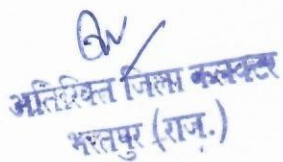 अतिरिक्त जिला कलक्टर
भरतपुर (राज.)